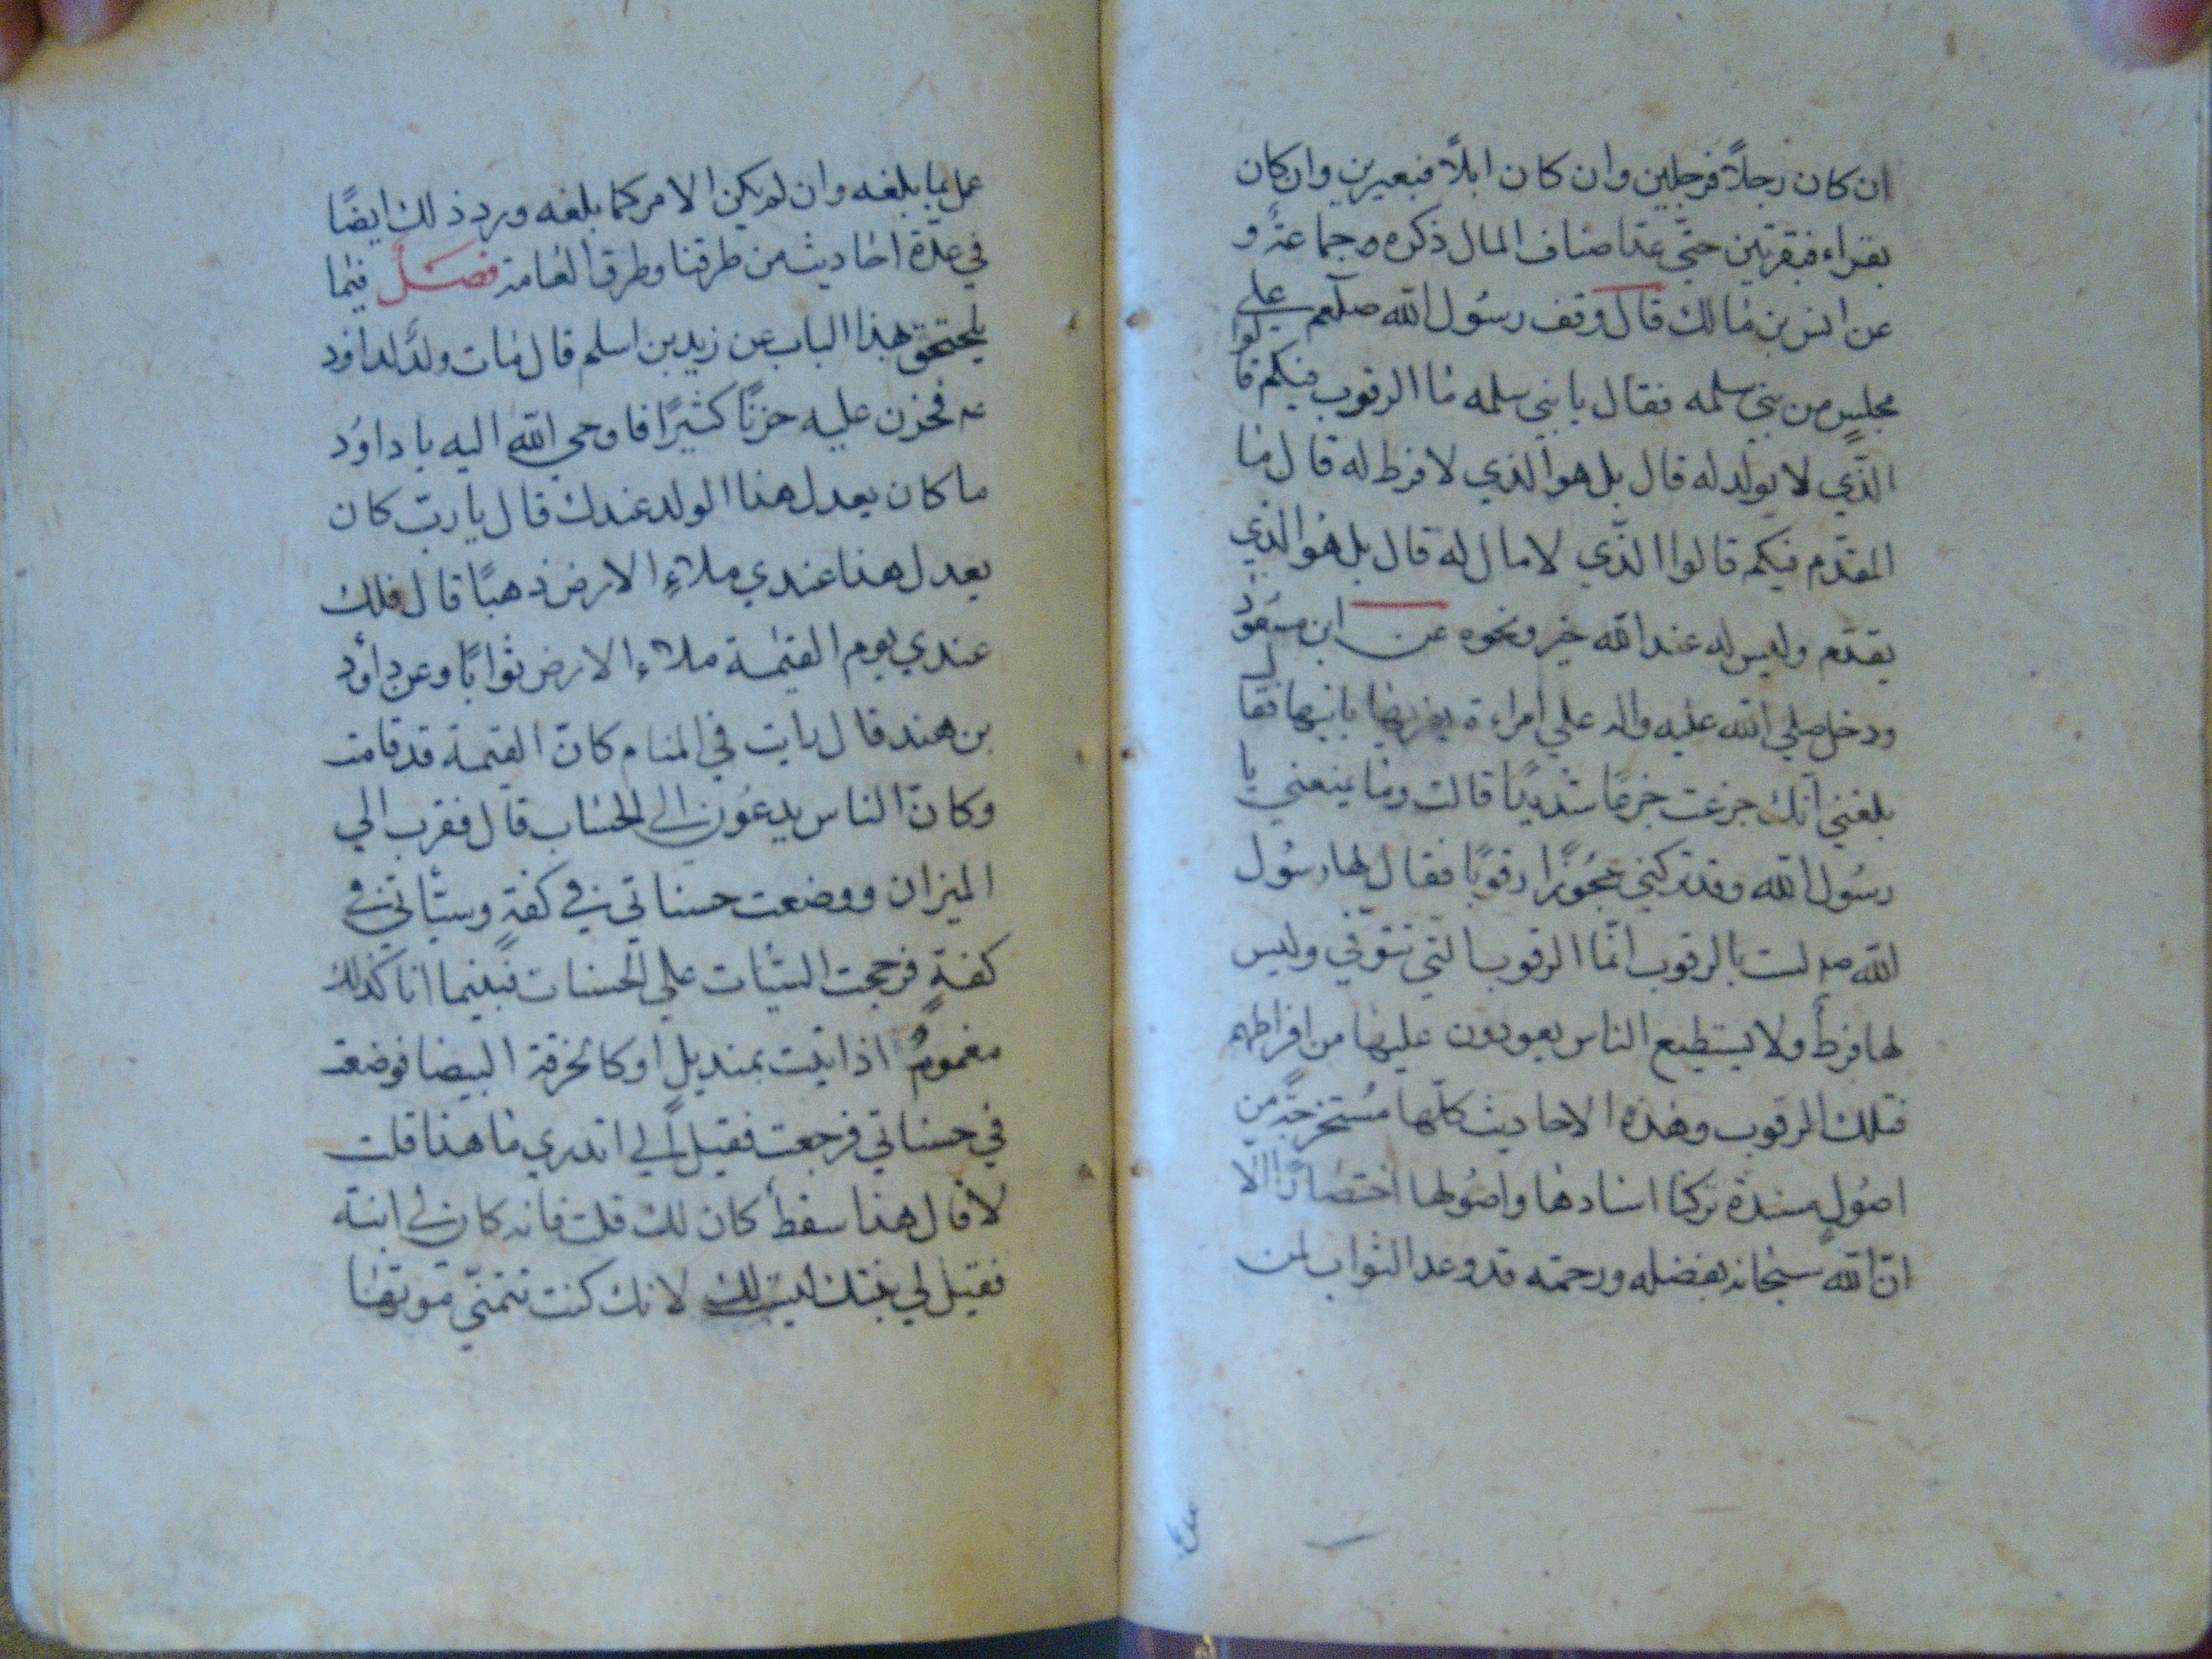 ان كان رجلاً فرجلين وان كان ابلاً فبعيرين وان كان
بقراء فبقرتين حتّى عدّ اصناف المال ذكره جماعةٌ و
عن انس بن مالك قال وقف رسُول الله صلعم على
مجلسٍ من بني سلمه فقال يا بني سلمه ما الرقوب فيكم قالوا
الذّي لا يولد له قال بل هو الذي لا فرط له قال ما
المقدّم فيكم قالوا الذّي لا مال له قال بل هُو الذي
يقدّم وليس له عند الله خير ونحوه عن ابن مسعُود
ودخل صلى الله عليه واله على امراءة يعزيها بابنها فقال
بلغني انّك جزعت جزعًا شديدًا قالت وما يمنعني يا
رسُول الله وقد تركني عجُوزًا رقوبًا فقال لها رسُول
الله صم لست بالرقوب انمّا الرقوب التي تتوفّي وليس
لها فرطٌ ولا يستطيع الناس يعودون عليها من افراطهم
فتلك الرقوب وهذه الاحاديث كلّها مُستخرجةٌ من
اصُولٍ مسندة تركنا اسنادها واصُولها اختصارًا الا
انّ الله سبحانه بفضله ورحمته قد وعد الثواب لمن
عمل
عمل بما بلغه وان لم يكن الامر كما بلغه ورد ذلك ايضًا
في عدّة احاديث من طرقنا وطرق العامة فصَلٌ فيما
يلحق بهذا الباب عن زيد بن اسلم قال مات ولدٌ لداود
عم فحزن عليه حزنًا كثيرًا فاوحي الله اليه يا داوُد
ما كان يعدل هذا الولد عندك قال يا ربّ كان
يعدل هذا عندي ملاءِ الارض ذهبًا قال فلك
عندي يوم القيٰمة ملاءِ الارض ثوابًا وعن داوُد
بن هند قال رايت في المنام كانّ القيمة قد قامت
وكانّ الناس يدعُون الى الحساب قال فقرب الي
الميزان ووضعت حسناتي في كفةٍ وسيّأتي في
كفةٍ فرجحت السيّأت على الحسنات فبينما انا كذلك
مغمومٌ اذ اتيت بمنديلٍ او كالخرقة البيضا فوضعت
في حسناتي فرجحت فقيل لي اتدري ما هذا قلت
لا قال هذا سقطٌ كان لك قلت فانه كان لي ابنة
فقيل لي بنتك ليست لك لانك كنت تتمنّي موتها